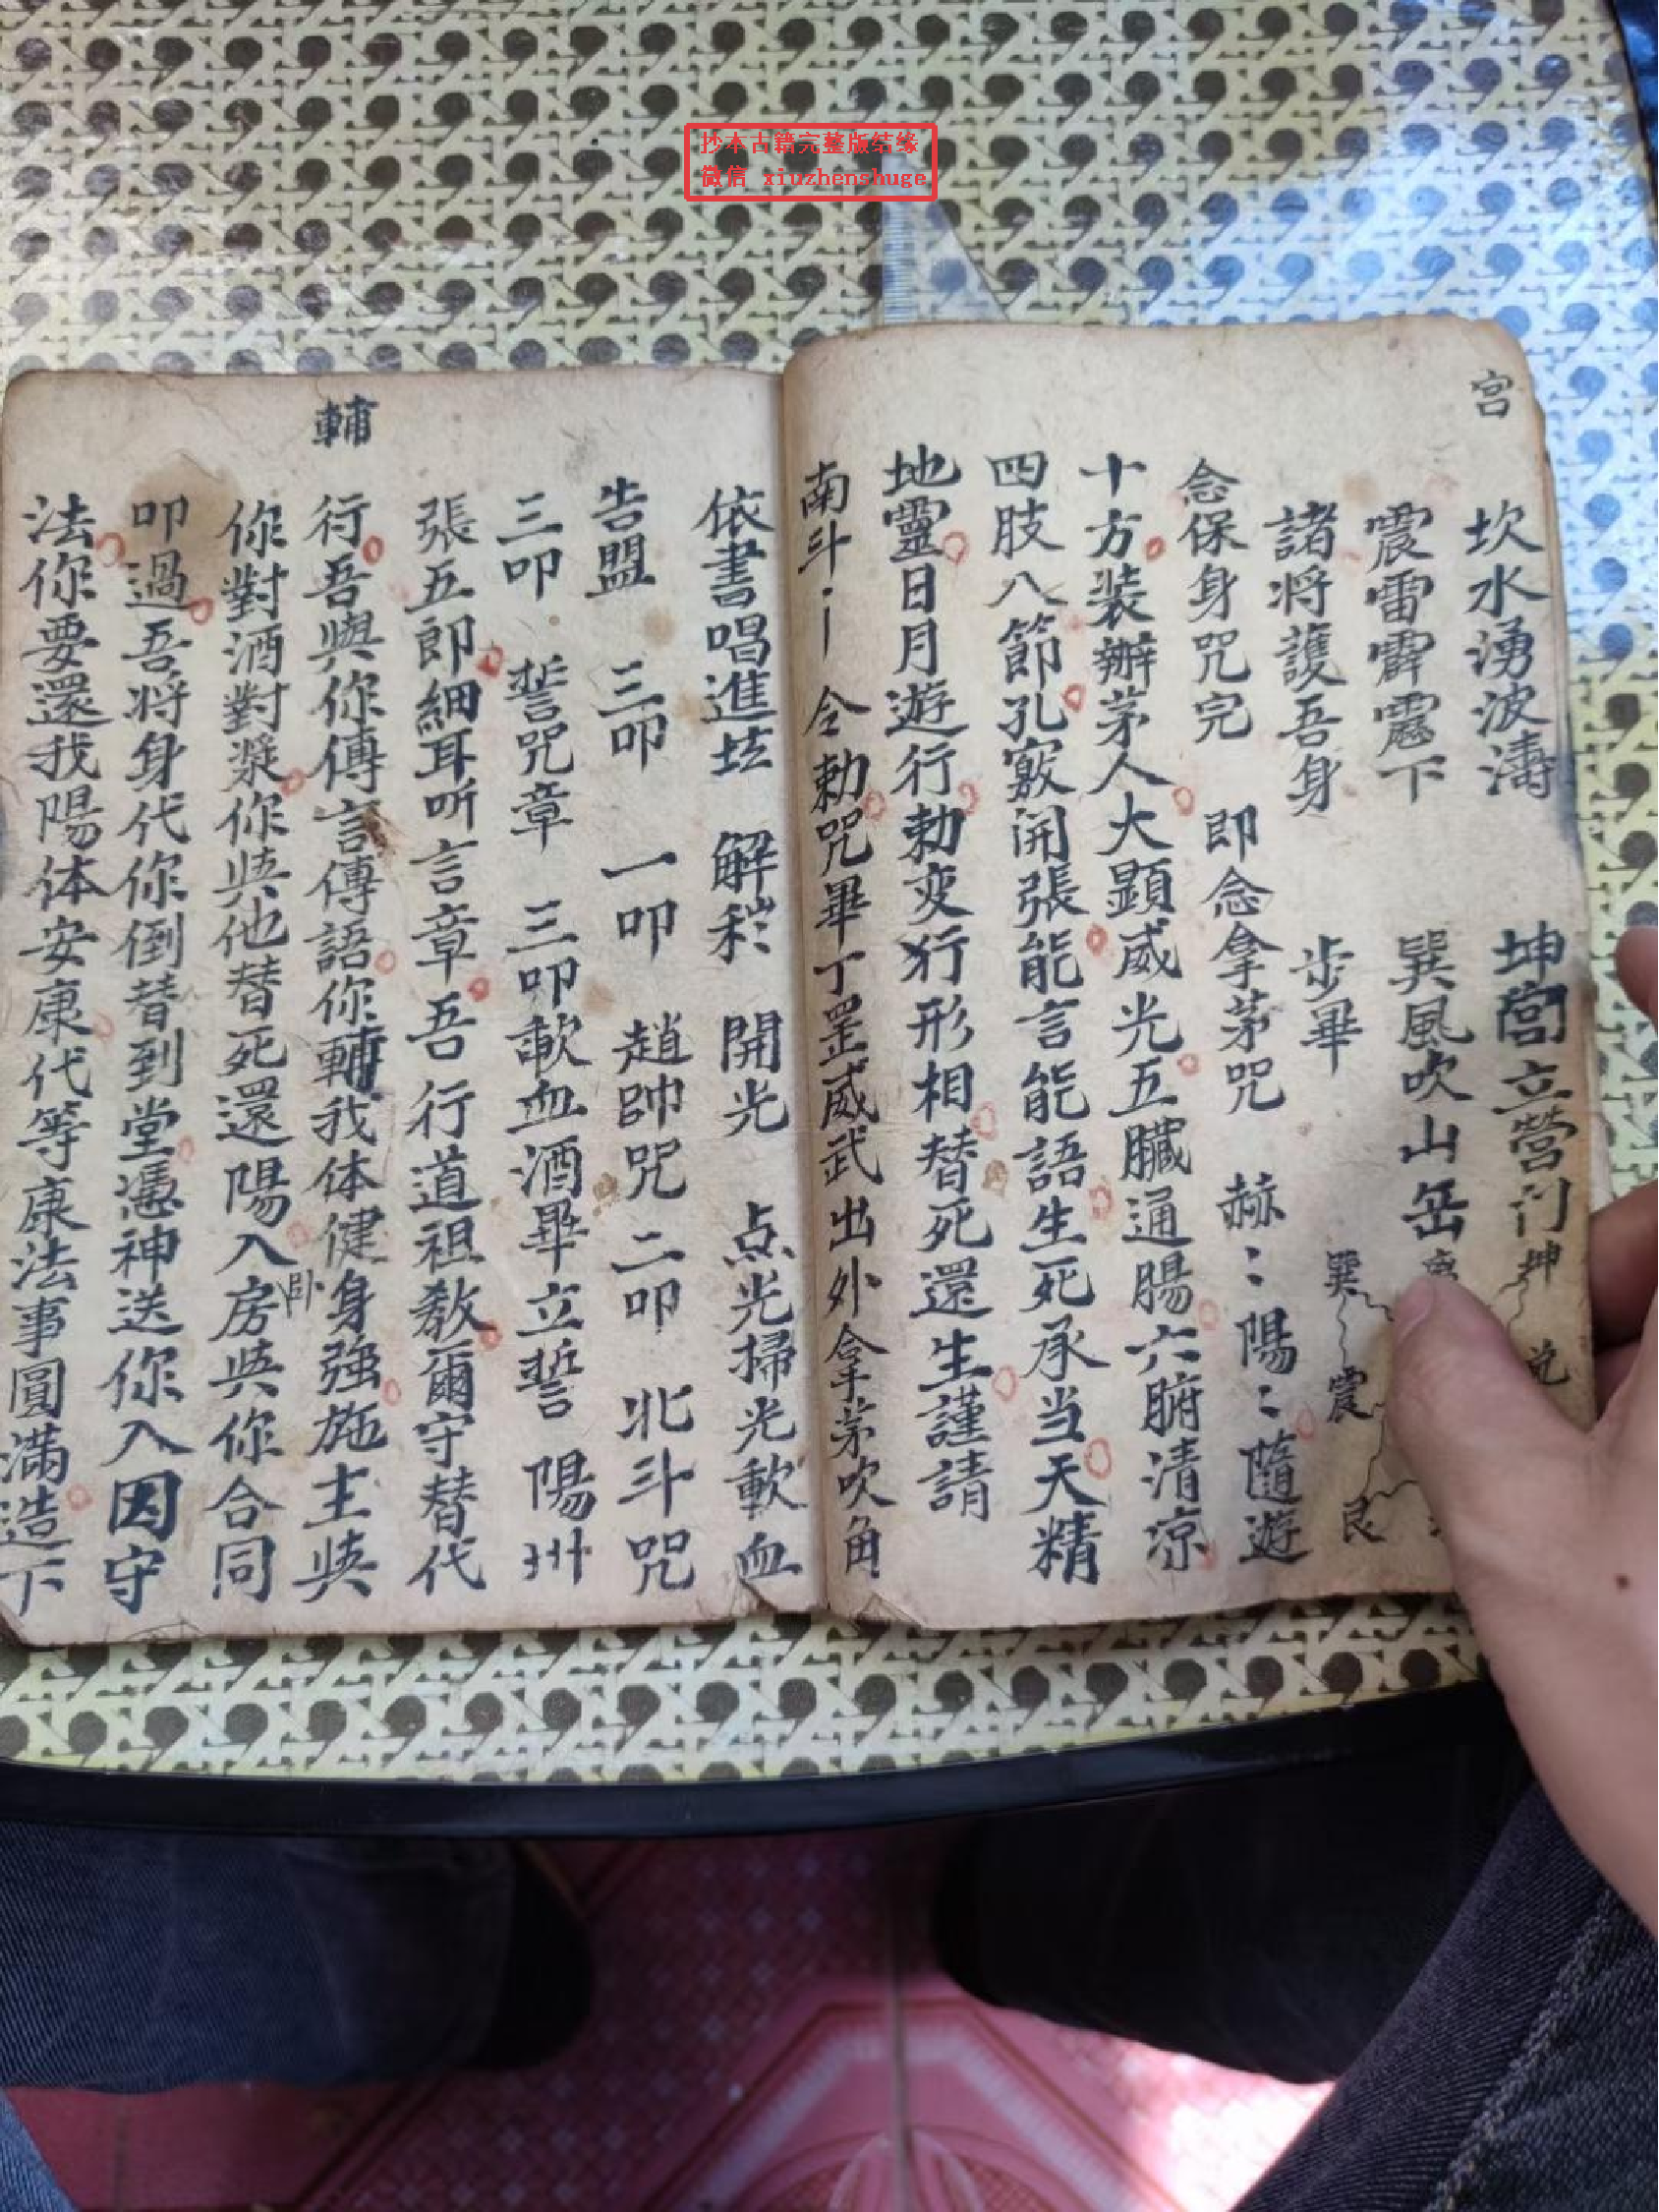 抄本古籍完整版结缘
微信 xiuzhenshuge
宮
坎水湧波濤 坤宮立營门 坤 兑
震雷霹靂下 巽風吹山岳
諸将護吾身 步畢 巽 震 艮
念保身咒完 即念拿茅咒 赫:陽:隨遊
十方装辦茅人大顕威光五臟通腸六腑清凉
四肢八節孔竅開張能言能語生死承当天精
地靈日月遊行勅变行形相替死還生謹請
南斗 令勅咒畢丁罡威武出外拿茅吹角
依書唱進坛 解秽 開光 点光掃光軟血
告盟 三叩 一叩 趙帥咒二叩 北斗咒
三叩 誓咒章 三叩歃血酒畢立誓 陽州
張五郎細耳听言章吾行道祖教爾守替代
輔
行吾與你傳言傳語你輔我体健身強施主與
你對酒對漿你與他替死還陽入房與你合同
卧
叩過吾将身代你倒替到堂憑神送你入因守
法你要還我陽体安康代等康法事圓滿造下